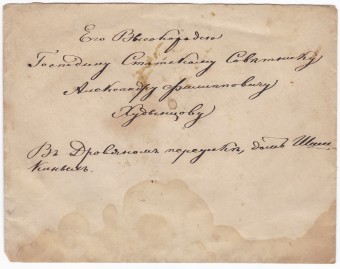 Его Высокородію
Господину Статскому Совѣтнику
Александру Филиповичу
Худынцову
Въ Дровяномъ переулкѣ, домъ Шиш
киныхъ.